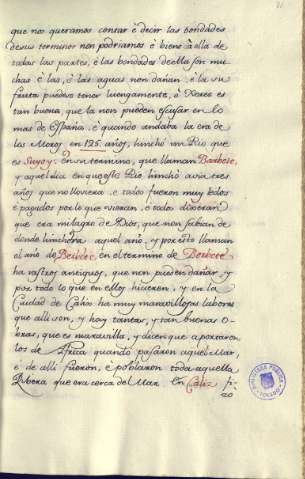 que nos queramos contar è decir las bondades
desus terminos non podriamos è biene à ella de
todas las partes, è las bondades de ella son mu-
chas è las, è las aguas non dañan è la su
fruta puedese tener luengamente, è Xeres es
tan buena, que la non pueden escusar en lo
mas de España, è quando andaba la era de
los Moros en 125 años, hinchó un Rio que
es suyo; en un termino, que llaman Barbete,
y aquel dia en que este Rio hinchó avia tres
años que no lloviera: è todos fueron muy ledos
è pagados por lo que vieran, è todos dixeran
que era milagro de Dios, que non sabian de
donde hinchera aquel año, y por esto llaman
el año de en el termino de
ha rastros antiguos, que non pueden dañar, y
por todo lo que en ellos hicieren, y en la
Ciudad de Cadis ha muy maravillosas labores
que alli son, y hay tantas, y tan buenas o-
bras, que es maravilla, y dicen que aportaron
los de Africa quando pasaron aquel Mar,
è de alli fueron, è poblaron toda aquella
Ribera que era cerca del Mar. En Cadiz